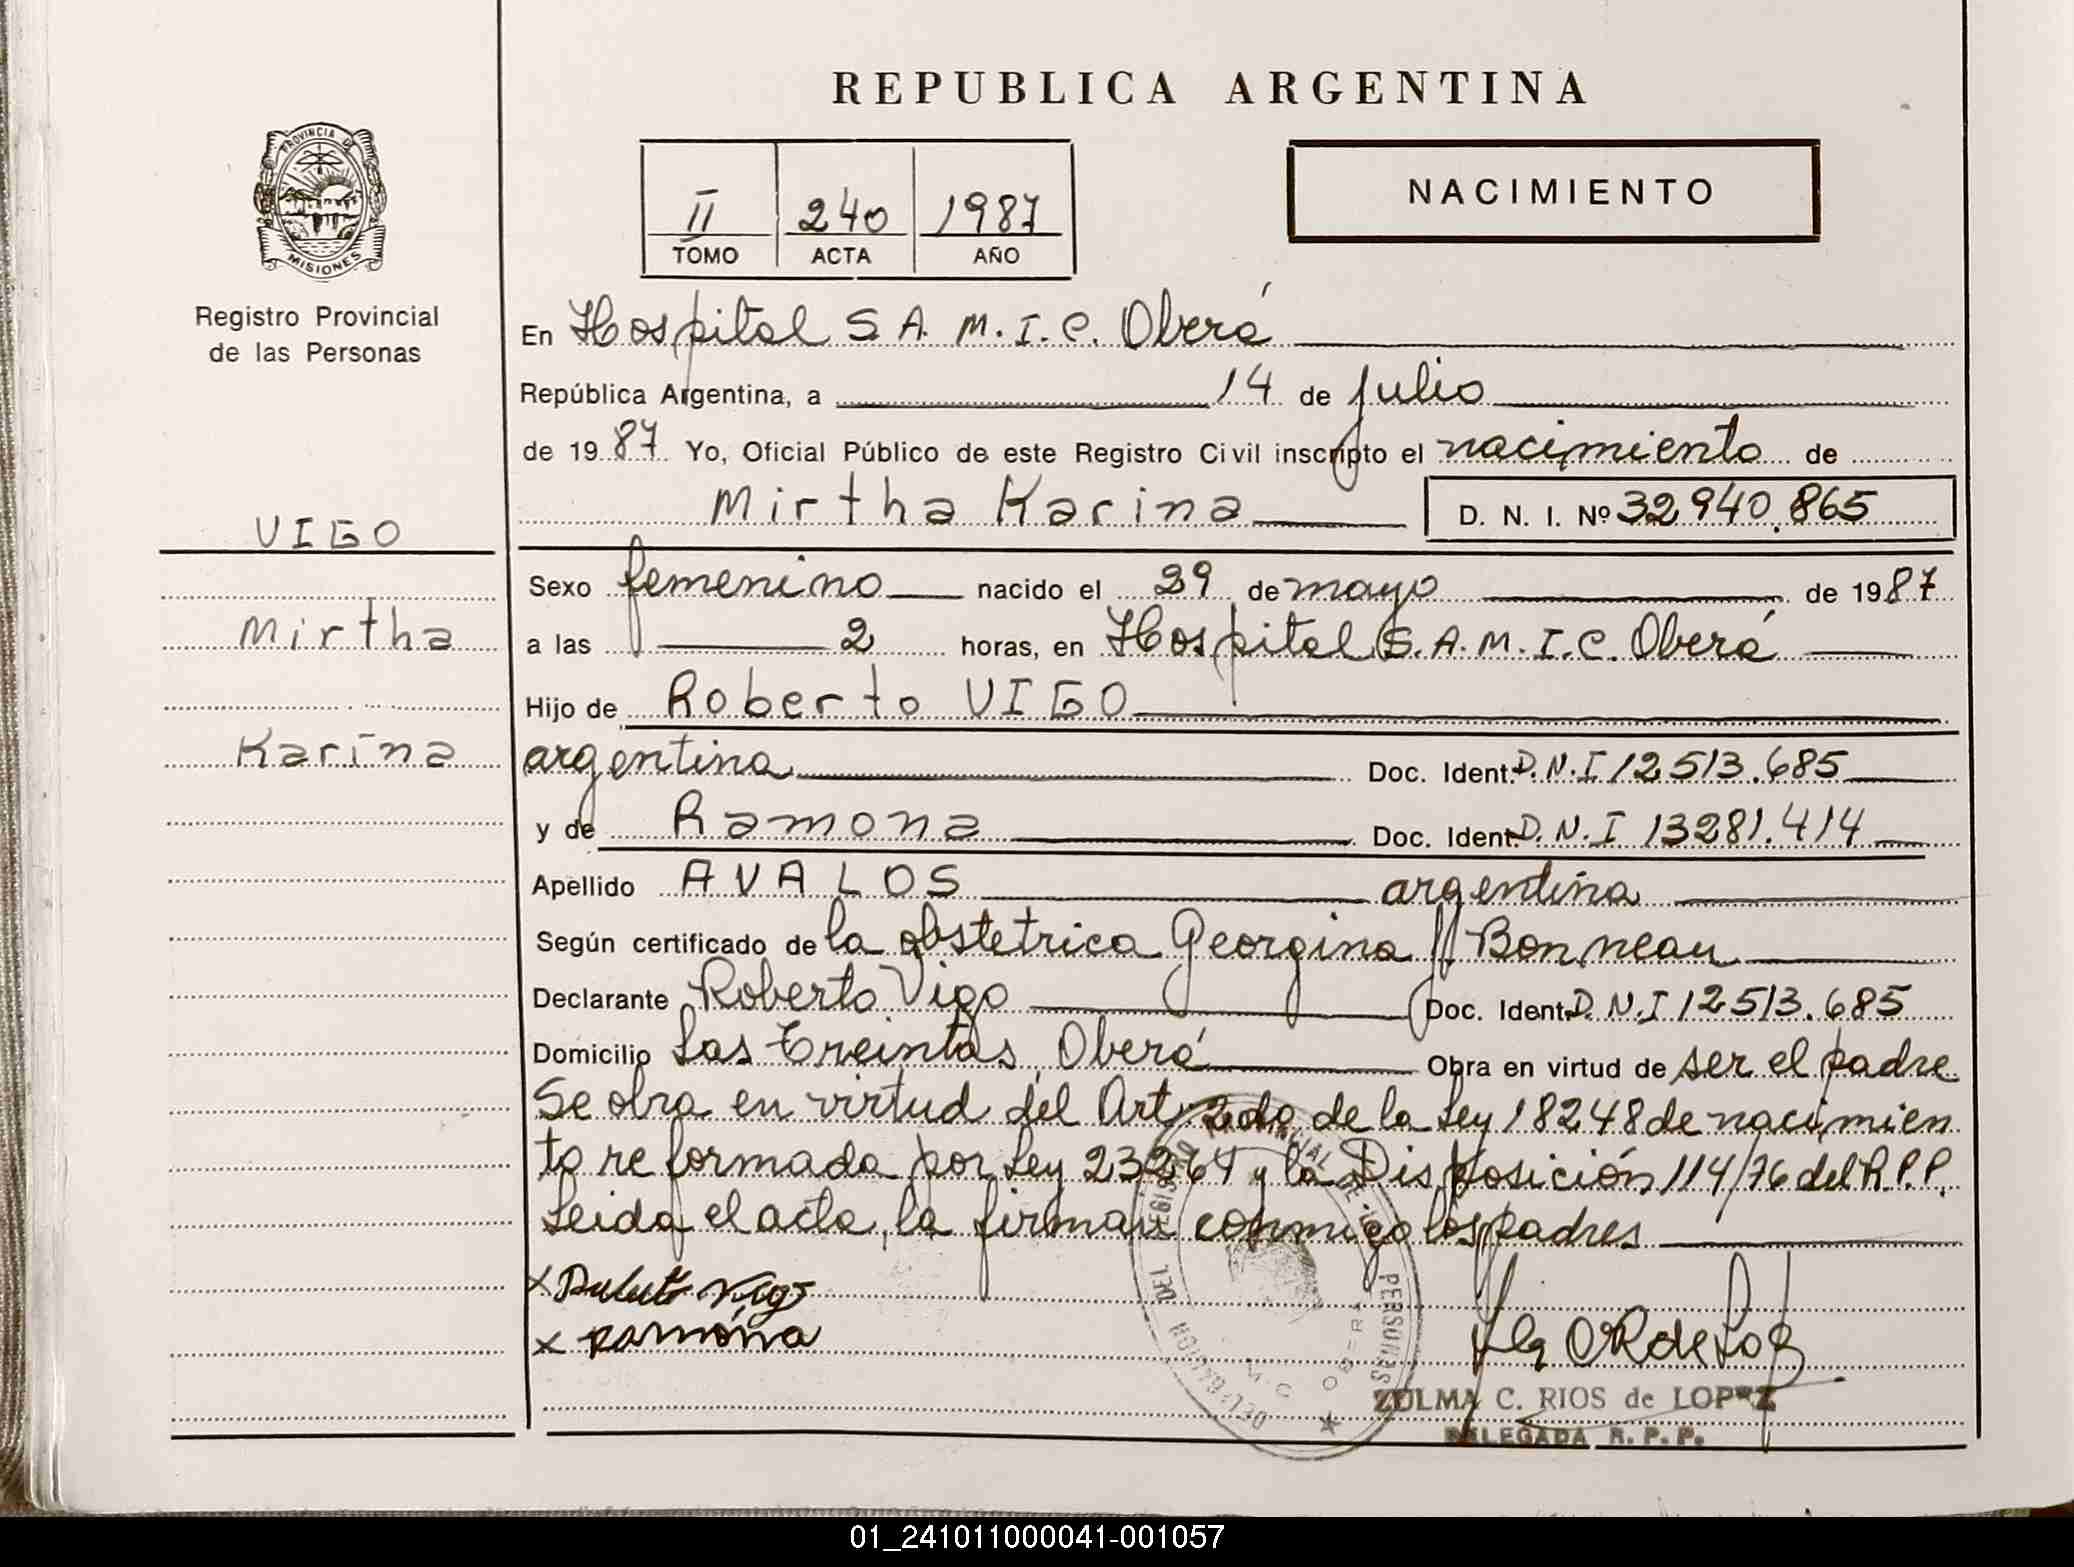 REPUBLICA ARGENTINA
PROVINCIA DE
MISIONES
Registro Provincial
de las Personas
II 240 1987
TOMO ACTA AÑO
NACIMIENTO
En Hospital S.A.M.I.C. Oberá
República Argentina, a 14 de julio
de 1987 Yo, Oficial Público de este Registro Civil inscripto el nacimiento de
Mirtha Karina D. N. I. Nº 32 940.865
VIGO
Mirtha
Karina
Sexo femenino nacido el 29 de mayo de 1987
a las 2 horas, en Hospital S.A.M.I.C. Oberá
Hijo de Roberto VIGO
argentina Doc. Ident. D.N.I 12513.685
y de Ramona Doc. Ident. D.N.I 13281.414
Apellido AVALOS argentina
Según certificado de la obstetrica Georgina Bonneau
Declarante Roberto Vigo Doc. Ident. D.N.I 12513.685
Domicilio Las Treintas, Oberá Obra en virtud de ser el padre
Se obra en virtud del Art. 2do de la Ley 18248 de nacimien
to reformada por Ley 23264 y la Disposición 114/76 del R.P.P.
Leida el acta, la firman conmigo los padres
x Vigo
x Ramona
DELEGACION DEL REGISTRO PROVINCIAL DE LAS PERSONAS
OBERA
ZULMA C. RIOS de LOPEZ
DELEGADA R. P. P.
01_241011000041-001057